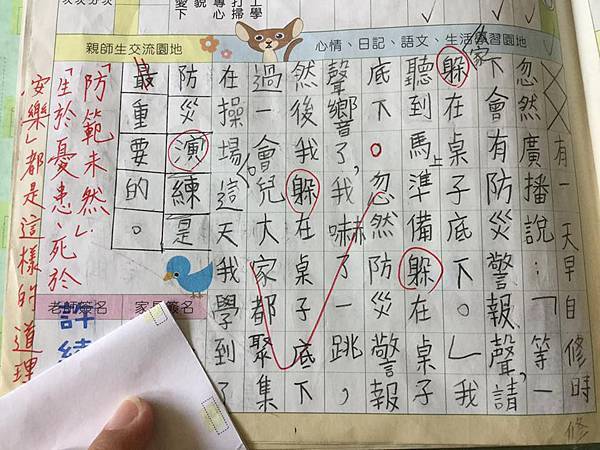 親師生交流園地
心情、日記、語文、生活學習園地
有一天早自修時
修
忽然廣播說：「等一
下會有防災警報聲，請
家
躲在桌子底下。」我
聽到馬上準備躲在桌子
底下。忽然防災警報
聲響了，我嚇了一跳，
然後我躲在桌子底下
過一會兒大家都聚集
在操場。這天我學到了
防災演練是
最重要的。
「防範未然」、
「生於憂患、死於
安樂」都是這樣的道理
老師簽名
家長簽名
許